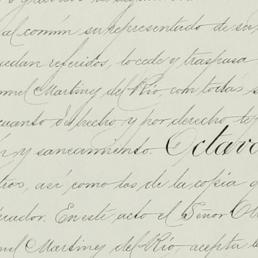 al común su representado de su
quedan referidos, lo cede y traspasa
Martinez del Rio con todas s
cuanto de hecho y por derecho te
y saneamiento. Octava
tros, así como las de la copia q
prador. En este acto el Señor
Martinez del Rio acepta